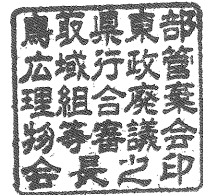 鳥取県東部
広域行政管
理組合廃棄
物等審議会
会長之印